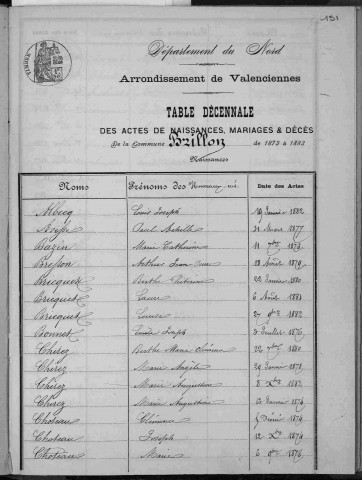 151
TIMBRE
Département du Nord
Arrondissement de Valenciennes
TABLE DÉCENNALE
DES ACTES DE NAISSANCES, MARIAGES & DÉCÈS
De la Commune Brillon de 1873 à 1882
Naissances
Noms Prénoms des Nouveaux-nés Date des Actes
Albecq Louis Joseph 19 Janvier 1882
Paul Achille 1877
Bazin Marie Catherine 11 1873
Bresson Arthur Jean 18 Août 1879
Bricquet Berthe 22 Janvier 1880
Bricquet Laure 6 Août
Bricquet Louise 27 9bre 1882
Bonnet Emile Joseph 3 Juillet 1876
Cherez Berthe Marie 22 1880
Cherez Marie Angèle 29 Janvier 1878
Cherez Marie Augustine 8 Xbre 1882
Cherez Marie Augustine 13 Janvier 1874
Choteau Clémence 5 Février 1874
Choteau Joseph 12 Xbre 1874
Choteau Marie 6 1876